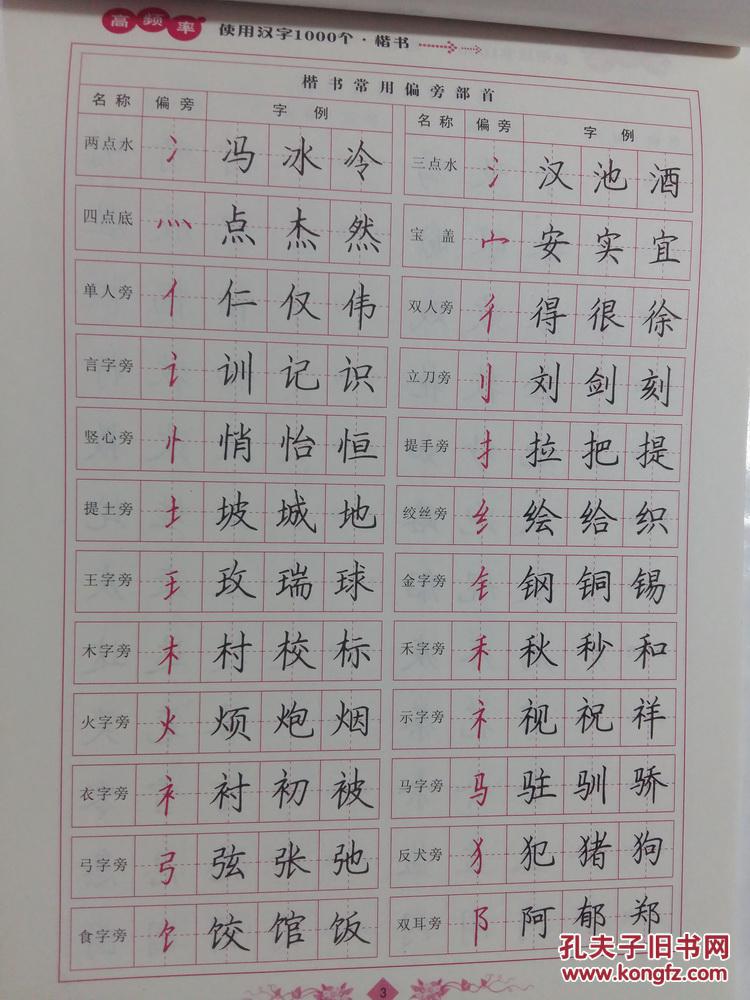 高频率 使用汉字1000个·楷书
楷书常用偏旁部首
名称 偏旁 字例
两点水 冫 冯 冰 冷
四点底 灬 点 杰 然
单人旁 亻 仁 仅 伟
言字旁 讠 训 记 识
竖心旁 忄 悄 怡 恒
提土旁 土 坡 城 地
王字旁 王 玫 瑞 球
木字旁 木 村 校 标
火字旁 火 烦 炮 烟
衣字旁 衤 衬 初 被
弓字旁 弓 弦 张 弛
食字旁 饣 饺 馆 饭
名称 偏旁 字例
三点水 氵 汉 池 酒
宝盖 宀 安 实 宜
双人旁 彳 得 很 徐
立刀旁 刂 刘 剑 刻
提手旁 扌 拉 把 提
绞丝旁 纟 绘 给 织
金字旁 钅 钢 铜 锡
禾字旁 禾 秋 秒 和
示字旁 礻 视 祝 祥
马字旁 马 驻 驯 骄
反犬旁 犭 犯 猪 狗
双耳旁 阝 阿 郁 郑
3
孔夫子旧书网
www.kongfz.com